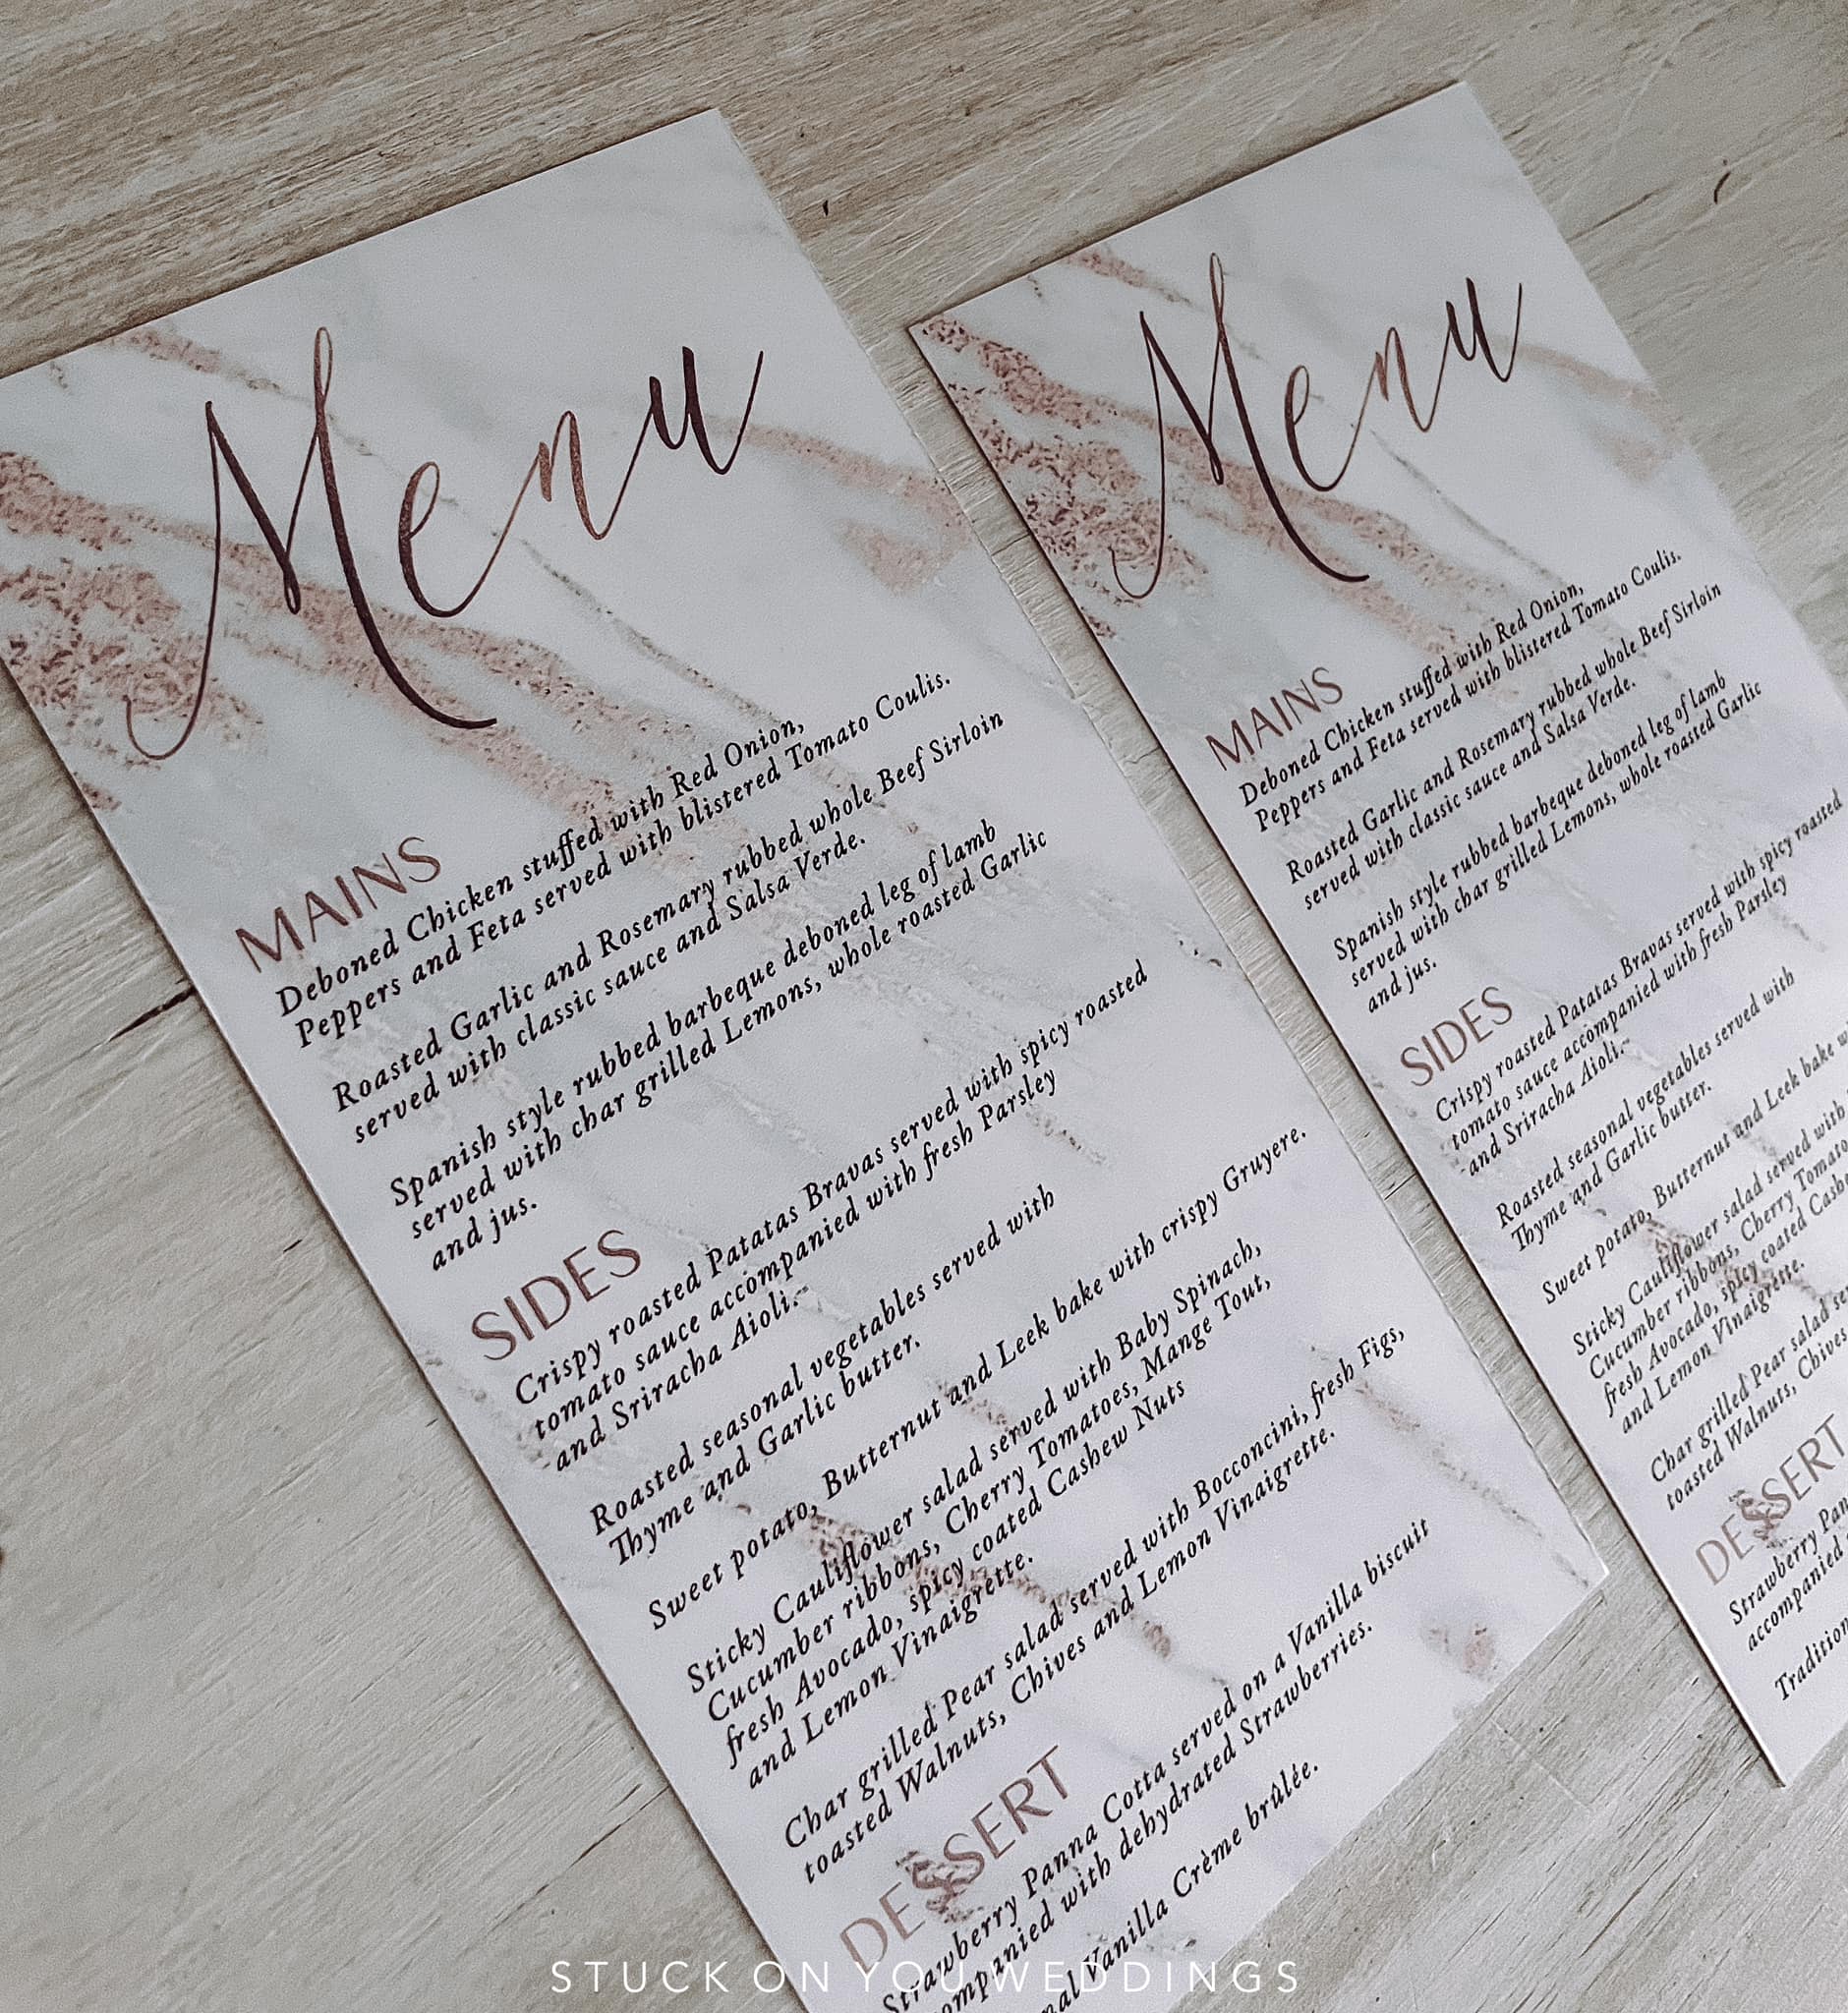 Menu
MAINS
Deboned Chicken stuffed with Red Onion,
Peppers and Feta served with blistered Tomato Coulis.
Roasted Garlic and Rosemary rubbed whole Beef Sirloin
served with classic sauce and Salsa Verde.
Spanish style rubbed barbeque deboned leg of lamb
served with char grilled Lemons, whole roasted Garlic
and jus.
SIDES
Crispy roasted Patatas Bravas served with spicy roasted
tomato sauce accompanied with fresh Parsley
and Sriracha Aioli.
Roasted seasonal vegetables served with
Thyme and Garlic butter.
Sweet potato, Butternut and Leek bake with crispy Gruyere.
Sticky Cauliflower salad served with Baby Spinach,
Cucumber ribbons, Cherry Tomatoes, Mange Tout,
fresh Avocado, spicy coated Cashew Nuts
and Lemon Vinaigrette.
Char grilled Pear salad served with Bocconcini, fresh Figs,
toasted Walnuts, Chives and Lemon Vinaigrette.
DESSERT
Strawberry Panna Cotta served on a Vanilla biscuit
ompanied with dehydrated Strawberries.
nal Vanilla Crème brûlée.
Menu
MAINS
Deboned Chicken stuffed with Red Onion,
Peppers and Feta served with blistered Tomato Coulis.
Roasted Garlic and Rosemary rubbed whole Beef Sirloin
served with classic sauce and Salsa Verde.
Spanish style rubbed barbeque deboned leg of lamb
served with char grilled Lemons, whole roasted Garlic
and jus.
SIDES
Crispy roasted Patatas Bravas served with spicy roasted
tomato sauce accompanied with fresh Parsley
and Sriracha Aioli.
Roasted seasonal vegetables served with
Thyme and Garlic butter.
Sweet potato, Butternut and Leek bake w
Sticky Cauliflower salad served with
Cucumber ribbons, Cherry Tomato
fresh Avocado, spicy coated Cashe
and Lemon Vinaigrette.
Char grilled Pear salad se
toasted Walnuts, Chives
DESSERT
Strawberry Pan
accompanied
Tradition
STUCK ON YOU WEDDINGS